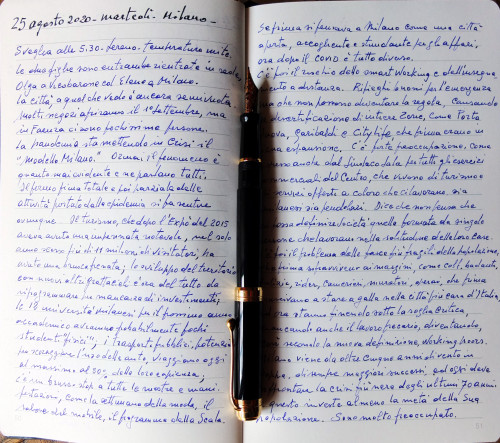 25 agosto 2020 - martedì - Milano -
Sveglia alle 5.30. Sereno. Temperatura mite.
Le due figlie sono entrambe rientrate in sede,
Olga a Vicobarone col Elena a Milano.
La città, a quel che vedo è ancora semivuota
molti negozi apriranno il 1° settembre, ma
in giro ci sono pochissime persone.
La pandemia sta mettendo in crisi il
"Modello Milano." Ormai il fenomeno è
quanto mai evidente e ne parlano tutti.
Il fermo prima totale e poi parziale delle
attività portato dalla epidemia si fa sentire
ovunque. Il turismo, che dopo l'Expò del 2015
aveva avuto una impennata notevole, nel solo
anno scorso più di 11 milioni di visitatori, ha
avuto una brusca frenata; lo sviluppo del territorio
con nuovi altri grattacieli è ora del tutto da
riprogrammare per mancanza di investimenti;
le 18 università milanesi per il prossimo anno
accademico avranno probabilmente pochi
studenti "fisici"; i trasporti pubblici, potenziati
per scoraggiare l'uso delle auto, viaggiano oggi
al massimo al 50% della loro capienza;
c'è un brusco stop a tutte le mostre e mani
festazioni, come la settimana della moda, il
salone del mobile, il programma della Scala.
Se prima si pensava a Milano come una città
aperta, accogliente e stimolante per gli affari
ora dopo il covid è tutto diverso.
C'è poi il rischio dello smart working e dell'insegna
mento a distanza. Ripieghi buoni per l'emergenza
ma che non possono diventare la regola, causando
la desertificazione di intere zone, come Porta
Nuova, Garibaldi e CityLife, che prima erano in
piena espansione. C'è forte preoccupazione, come
espresso anche dal Sindaco Sala per tutti gli esercizi
commerciali del Centro, che vivono di turismo e
servizi offerti a coloro che ci lavorano, sia
milanesi sia pendolari. Dice che non pensa che
possa definirsi società quella formata da singole
persone che lavorano nella solitudine delle loro case.
C'è poi il problema delle fasce più fragili della popolazione,
che prima sopravvivevano ai margini, come colf, badanti,
rider, camerieri, muratori, operai, che prima
riuscivano a stare a galla nella città più cara d'Italia,
ora stanno finendo sotto la soglia critica,
anche il lavoro precario, diventando,
secondo la nuova definizione, working poors.
Milano viene da oltre cinque anni di vento in
poppa, di sempre maggiori successi, ed oggi deve
affrontare la crisi più nera degli ultimi 70 anni
e questo investe almeno la metà della sua
popolazione. Sono molto preoccupato.